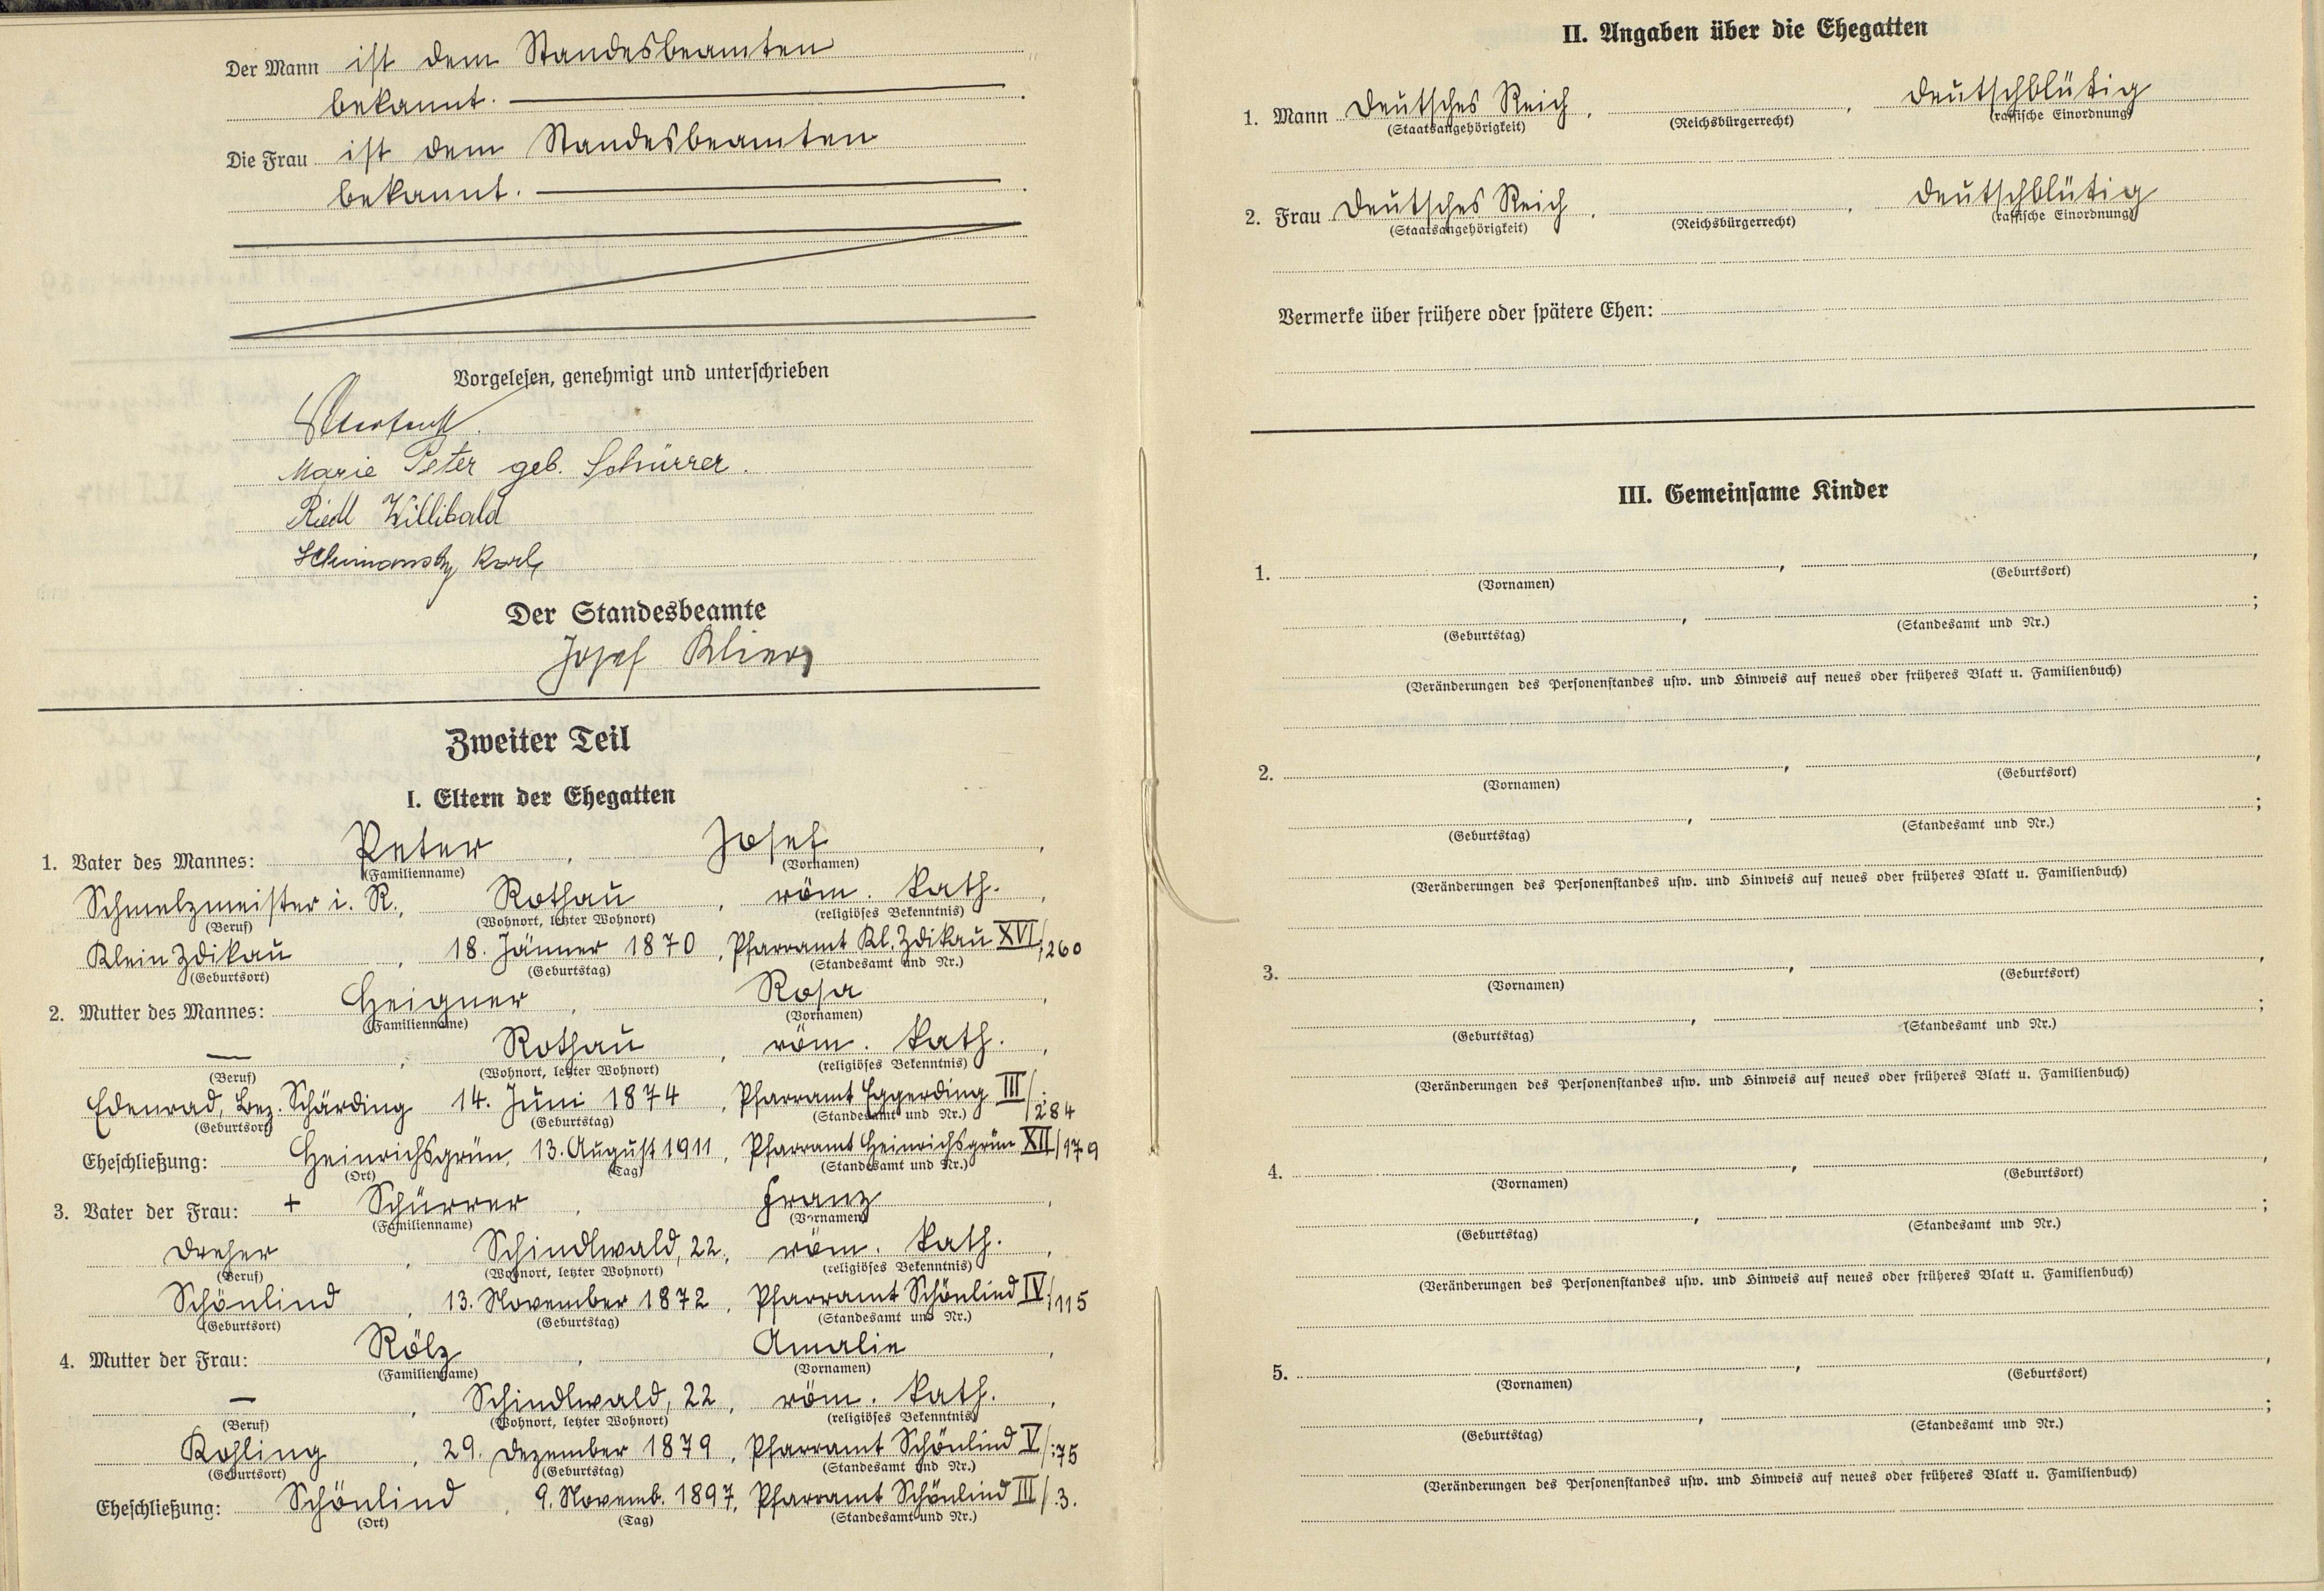 Der Mann ist dem Standesbeamten
bekannt.
Die Frau ist dem Standesbeamten
bekannt.
Vorgelesen, genehmigt und unterschrieben
Marie Peter geb. Schürrer.
Riedl Willibald
Karl
Der Standesbeamte
Josef Klier
Zweiter Teil
I. Eltern der Ehegatten
1. Vater des Mannes: Peter, Josef,
(Familienname) (Vornamen)
Schmelzmeister i. R., Rothau, röm. kath.,
(Beruf) (Wohnort, letzter Wohnort) (religiöses Bekenntnis)
Klein Zdikau, 18. Jänner 1870, Pfarramt Kl. Zdikau XVI/260
(Geburtsort) (Geburtstag) (Standesamt und Nr.)
2. Mutter des Mannes: Heigner, Rosa,
(Familienname) (Vornamen)
—, Rothau, röm. kath.,
(Beruf) (Wohnort, letzter Wohnort) (religiöses Bekenntnis)
Edenrad, Bez. Schärding 14. Juni 1874, Pfarramt Eggerding III/284
(Geburtsort) (Geburtstag) (Standesamt und Nr.)
Eheschließung: Heinrichsgrün, 13. August 1911, Pfarramt Heinrichsgrün XII/179
(Ort) (Tag) (Standesamt und Nr.)
3. Vater der Frau: + Schürrer, Franz,
(Familienname) (Vornamen)
Dreher, Schindlwald, 22, röm. kath.,
(Beruf) (Wohnort, letzter Wohnort) (religiöses Bekenntnis)
Schönlind, 13. November 1872, Pfarramt Schönlind IV/115
(Geburtsort) (Geburtstag) (Standesamt und Nr.)
4. Mutter der Frau: Rölz, Amalie,
(Familienname) (Vornamen)
—, Schindlwald, 22, röm. kath.,
(Beruf) (Wohnort, letzter Wohnort) (religiöses Bekenntnis)
Kohling, 29. Dezember 1879, Pfarramt Schönlind V/75
(Geburtsort) (Geburtstag) (Standesamt und Nr.)
Eheschließung: Schönlind, 9. Novemb. 1897, Pfarramt Schönlind III/3.
(Ort) (Tag) (Standesamt und Nr.)
II. Angaben über die Ehegatten
1. Mann Deutsches Reich, , deutschblütig
(Staatsangehörigkeit) (Reichsbürgerrecht) (rassische Einordnung)
2. Frau Deutsches Reich, , deutschblütig
(Staatsangehörigkeit) (Reichsbürgerrecht) (rassische Einordnung)
Vermerke über frühere oder spätere Ehen:
III. Gemeinsame Kinder
1. , ,
(Vornamen) (Geburtsort)
, ;
(Geburtstag) (Standesamt und Nr.)
(Veränderungen des Personenstandes usw. und Hinweis auf neues oder früheres Blatt u. Familienbuch)
2. , ,
(Vornamen) (Geburtsort)
, ;
(Geburtstag) (Standesamt und Nr.)
(Veränderungen des Personenstandes usw. und Hinweis auf neues oder früheres Blatt u. Familienbuch)
3. , ,
(Vornamen) (Geburtsort)
, ;
(Geburtstag) (Standesamt und Nr.)
(Veränderungen des Personenstandes usw. und Hinweis auf neues oder früheres Blatt u. Familienbuch)
4. , ,
(Vornamen) (Geburtsort)
, ;
(Geburtstag) (Standesamt und Nr.)
(Veränderungen des Personenstandes usw. und Hinweis auf neues oder früheres Blatt u. Familienbuch)
5. , ,
(Vornamen) (Geburtsort)
, ;
(Geburtstag) (Standesamt und Nr.)
(Veränderungen des Personenstandes usw. und Hinweis auf neues oder früheres Blatt u. Familienbuch)